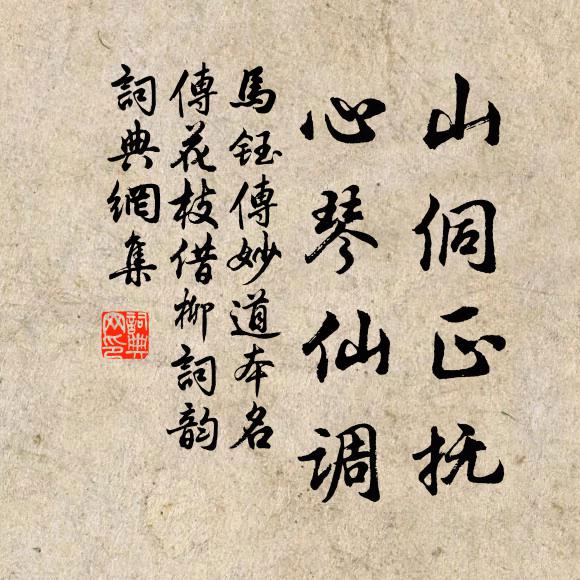 山侗正抚
心琴仙调
馬鈺傳妙道本名
傳花枝借柳詞韵
詞典網集
詞典網印